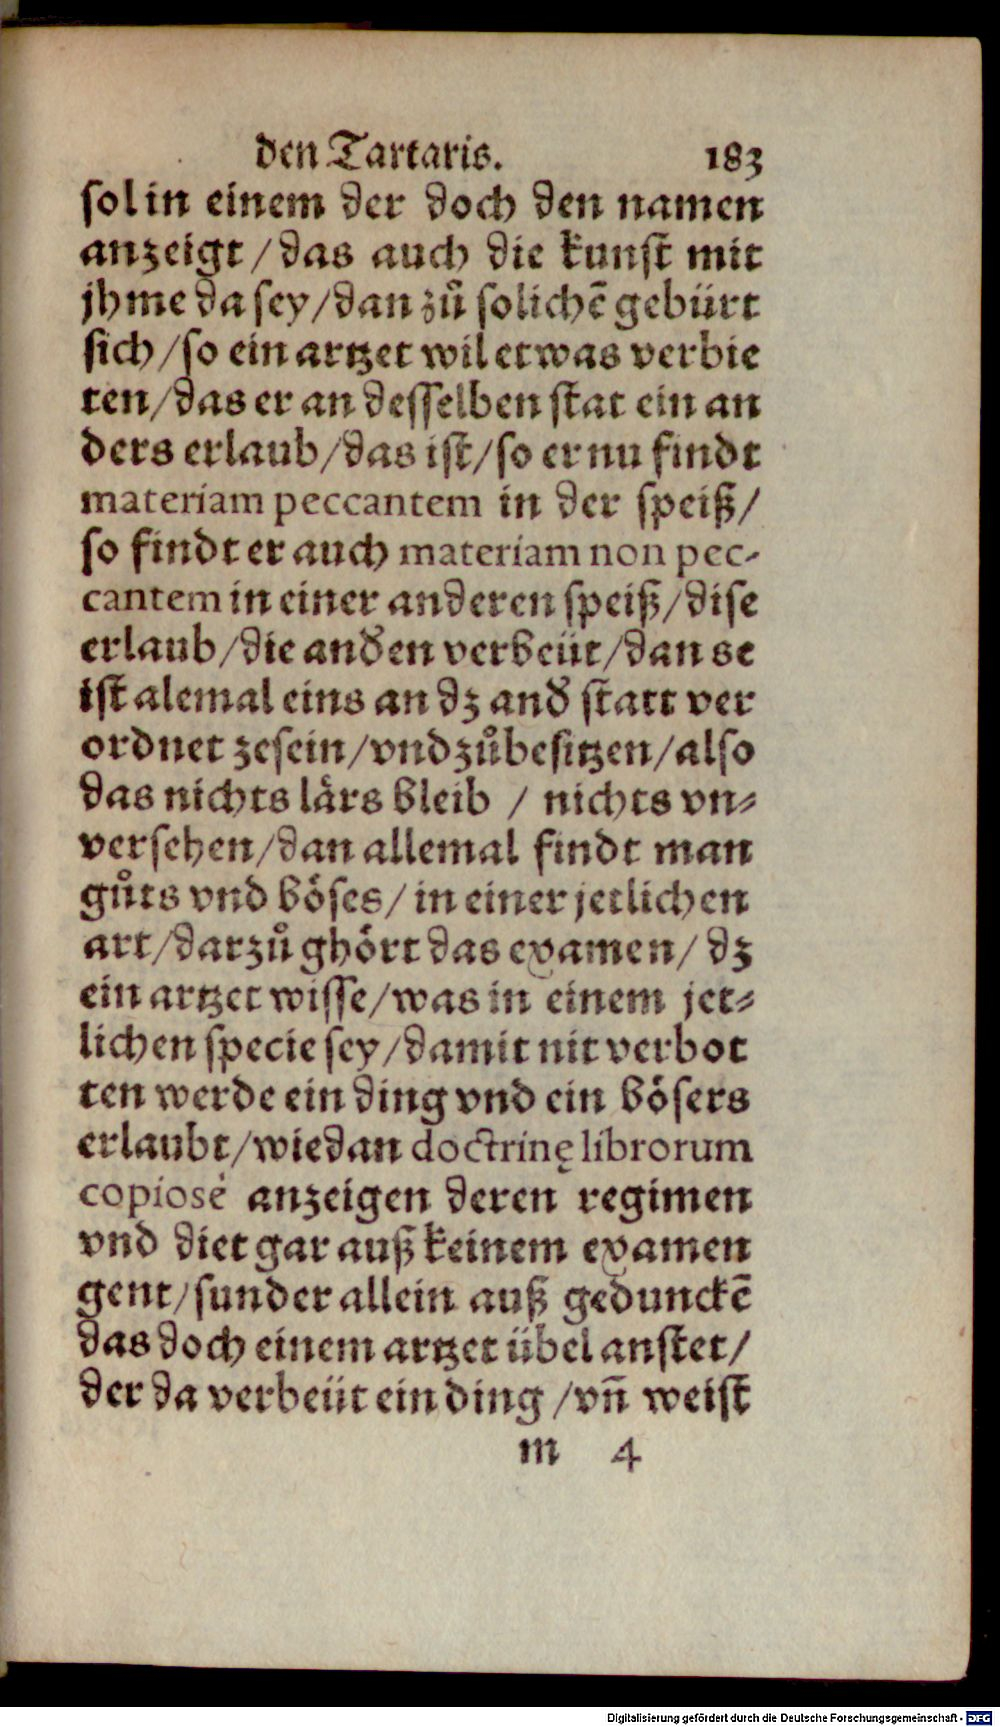 den Tartaris. 183
sol in einem der doch den namen
anzeigt / das auch die kunst mit
jhme da sey / dan zů solichē gebürt
sich / so ein artzet wil etwas verbie
ten / das er an desselben stat ein an
ders erlaub / das ist / so er nu findt
materiam peccantem in der speiß /
so findt er auch materiam non pec-
cantem in einer anderen speiß / dise
erlaub / die anđen verbeüt / dan se
ist alemal eins an dz anđ statt ver
ordnet zesein / vnd zůbesitzen / also
das nichts lärs bleib / nichts vn-
versehen / dan allemal findt man
gůts vnd böses / in einer jetlichen
art / darzů ghört das examen / dz
ein artzet wisse / was in einem jet-
lichen specie sey / damit nit verbot
ten werde ein ding vnd ein bösers
erlaubt / wie dan doctrinę librorum
copiosè anzeigen deren regimen
vnd diet gar auß keinem examen
gent / sunder allein auß gedunckē
das doch einem artzet übel anstet /
der da verbeüt ein ding / vñ weist
m 4
Digitalisierung gefördert durch die Deutsche Forschungsgemeinschaft - DFG